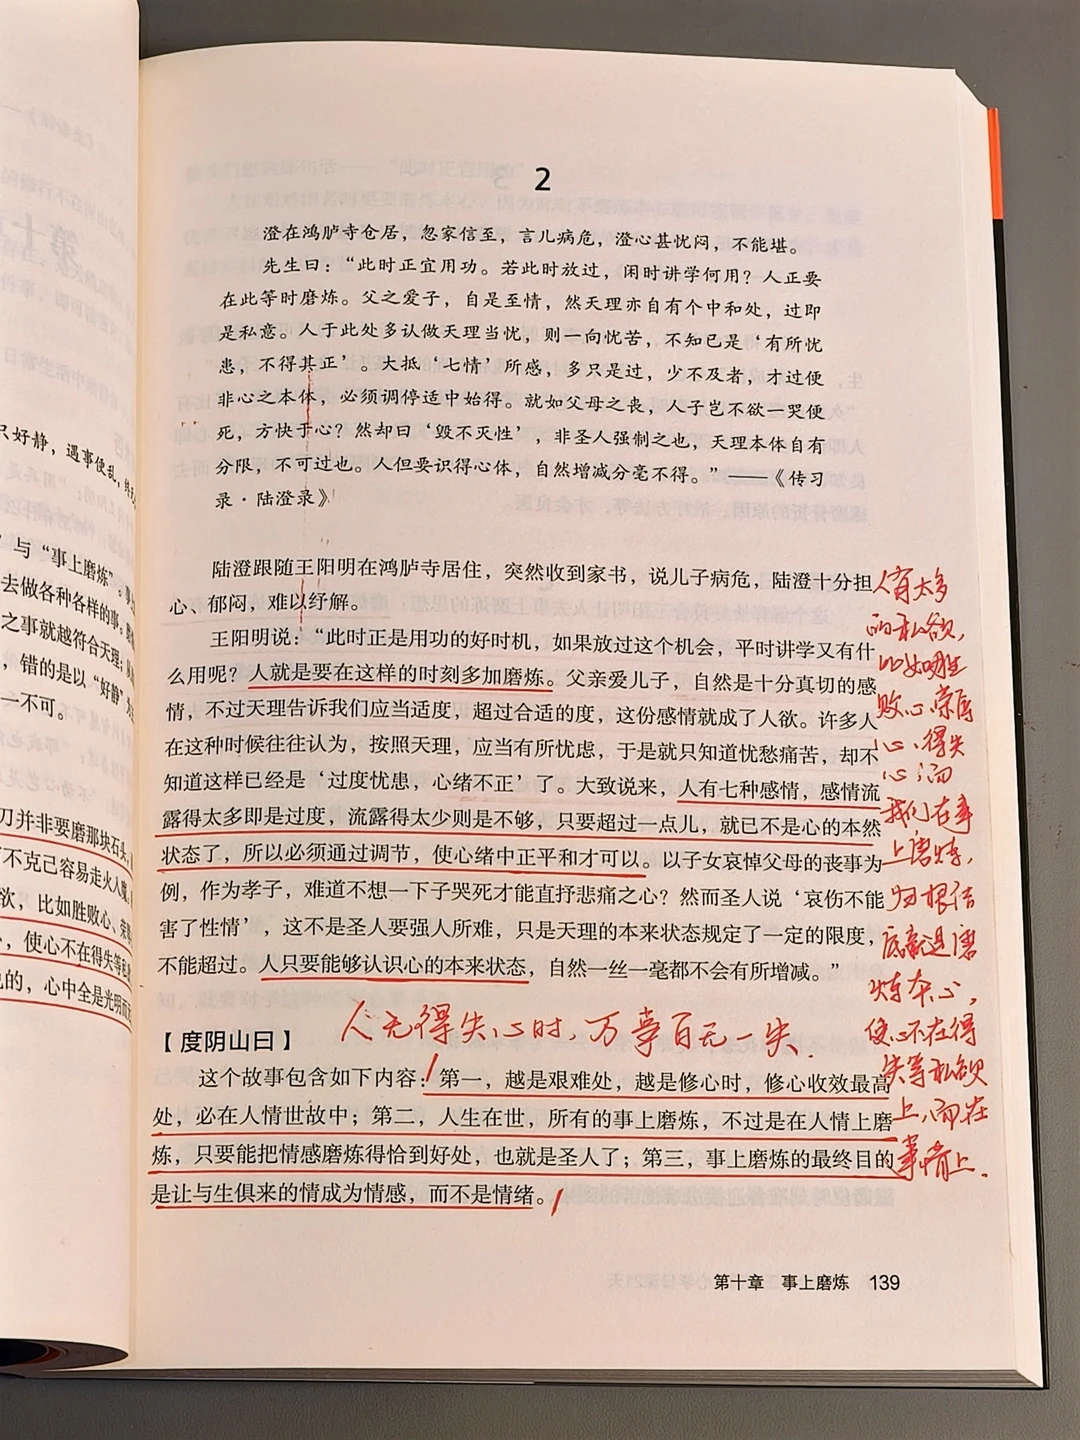 只好静，遇事便乱，终
”与“事上磨炼”。
去做各种各样的事。
之事就越符合天理；
，错的是以“好静”为
一不可。
刀并非要磨那块石头，
不克己容易走火入魔。
欲，比如胜败心、荣辱
，使心不在得失等私
的，心中全是光明而无
2
澄在鸿胪寺仓居，忽家信至，言儿病危，澄心甚忧闷，不能堪。
先生曰：“此时正宜用功。若此时放过，闲时讲学何用？人正要
在此等时磨炼。父之爱子，自是至情，然天理亦自有个中和处，过即
是私意。人于此处多认做天理当忧，则一向忧苦，不知已是‘有所忧
患，不得其正’。大抵‘七情’所感，多只是过，少不及者，才过便
非心之本体，必须调停适中始得。就如父母之丧，人子岂不欲一哭便
死，方快于心？然却曰‘毁不灭性’，非圣人强制之也，天理本体自有
分限，不可过也。人但要识得心体，自然增减分毫不得。”——《传习
录·陆澄录》
陆澄跟随王阳明在鸿胪寺居住，突然收到家书，说儿子病危，陆澄十分担
心、郁闷，难以纾解。
王阳明说：“此时正是用功的好时机，如果放过这个机会，平时讲学又有什
么用呢？人就是要在这样的时刻多加磨炼。父亲爱儿子，自然是十分真切的感
情，不过天理告诉我们应当适度，超过合适的度，这份感情就成了人欲。许多人
在这种时候往往认为，按照天理，应当有所忧虑，于是就只知道忧愁痛苦，却不
知道这样已经是‘过度忧患，心绪不正’了。大致说来，人有七种感情，感情流
露得太多即是过度，流露得太少则是不够，只要超过一点儿，就已不是心的本然
状态了，所以必须通过调节，使心绪中正平和才可以。以子女哀悼父母的丧事为
例，作为孝子，难道不想一下子哭死才能直抒悲痛之心？然而圣人说‘哀伤不能
害了性情’，这不是圣人要强人所难，只是天理的本来状态规定了一定的限度，
不能超过。人只要能够认识心的本来状态，自然一丝一毫都不会有所增减。”
人无得失心时，万事百无一失．
【度阴山曰】
这个故事包含如下内容：第一，越是艰难处，越是修心时，修心收效最高
处，必在人情世故中；第二，人生在世，所有的事上磨炼，不过是在人情上磨
炼，只要能把情感磨炼得恰到好处，也就是圣人了；第三，事上磨炼的最终目的
是让与生俱来的情成为情感，而不是情绪。
人有太多
的私欲，
比如胜
败心、荣辱
心、得失
心；而
我们在事
上磨炼，
归根结
底就是磨
炼本心，
使心不在得
失等私欲
上，而在
事情上．
第十章　事上磨炼　139